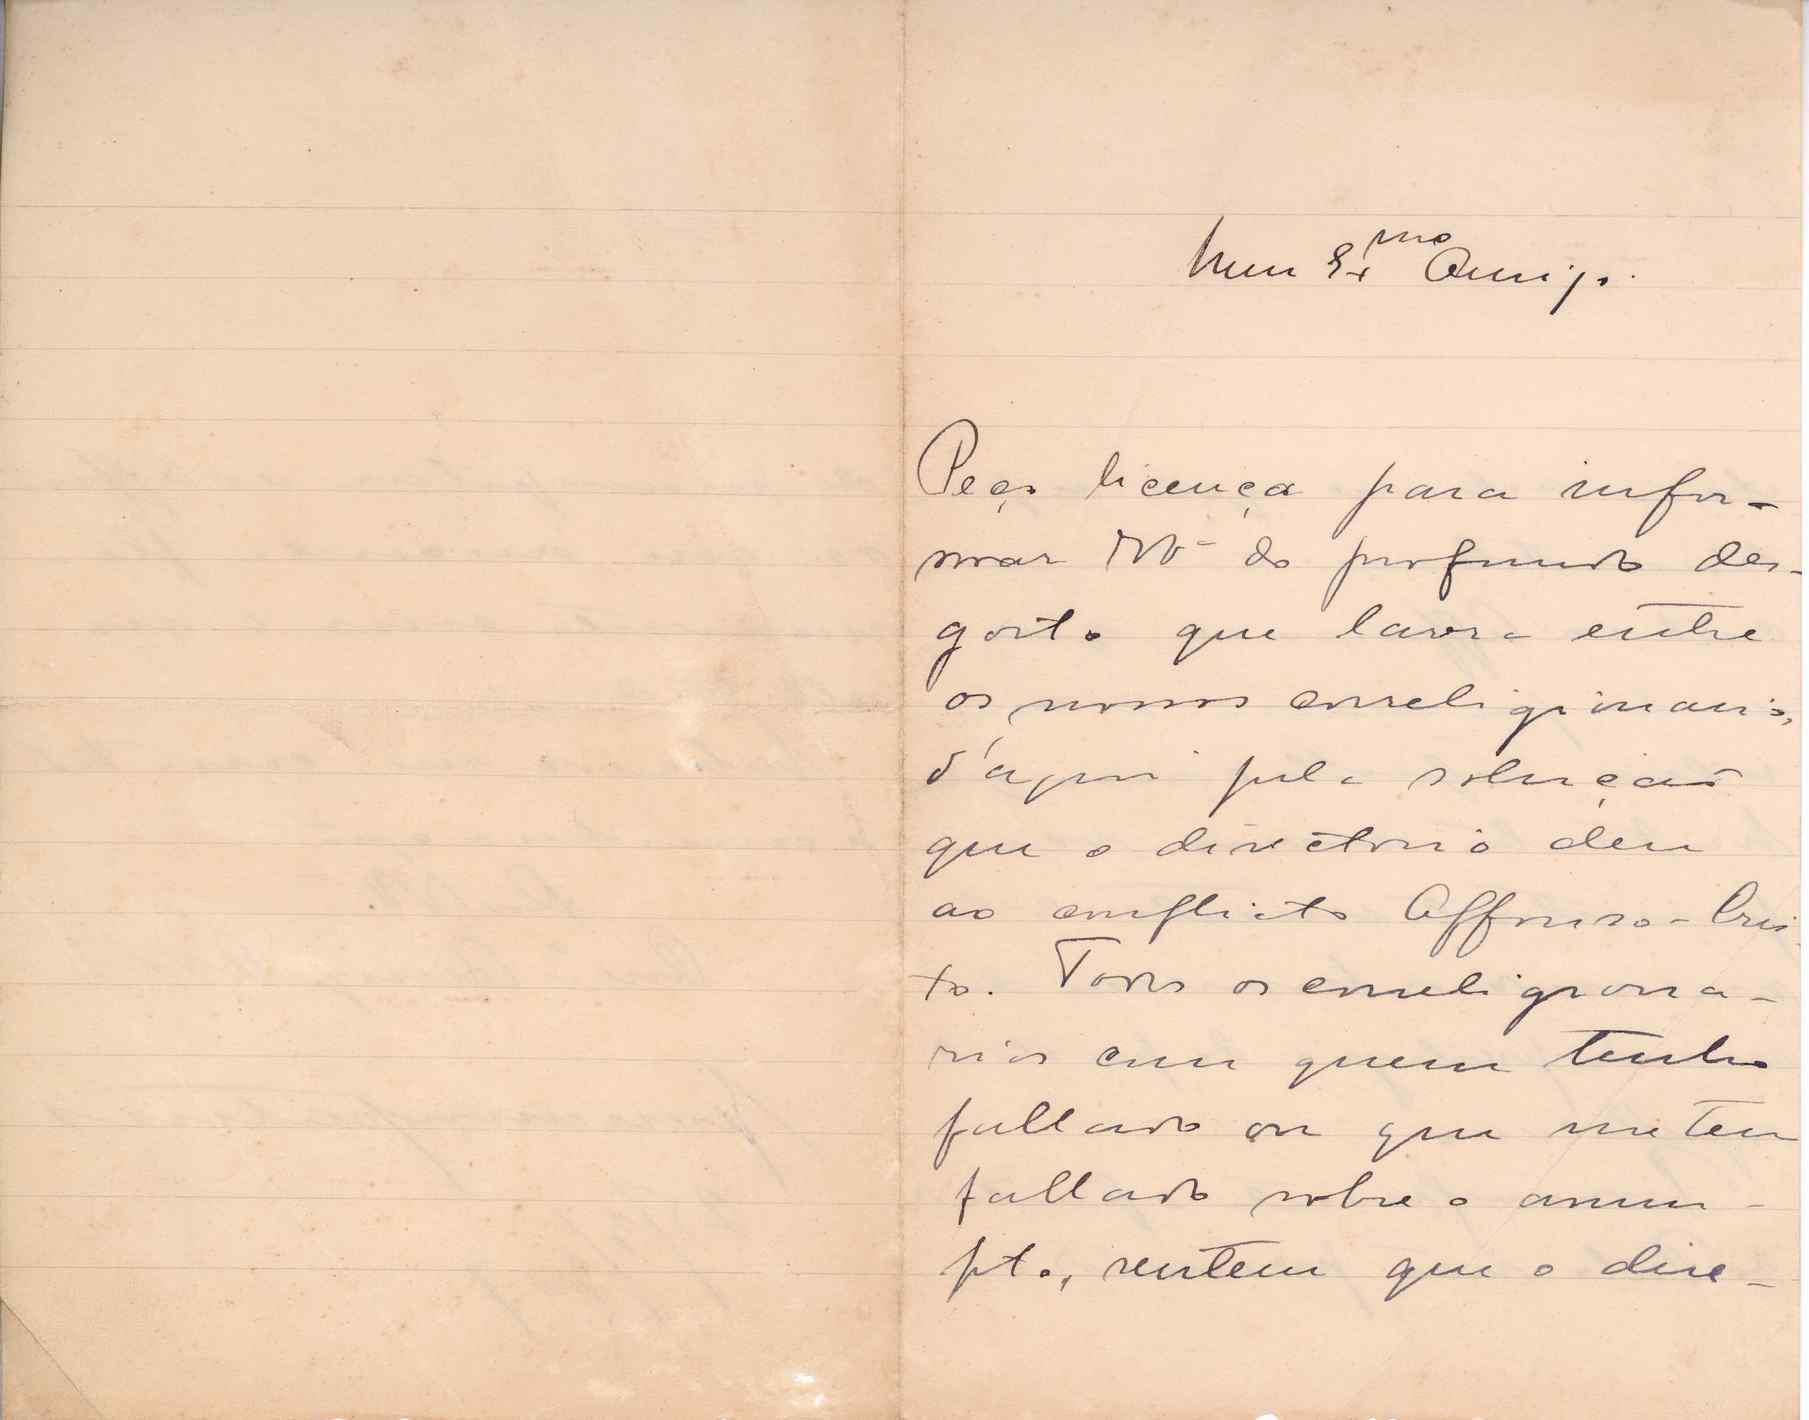 Meu Ex.mo Amigo.
Peço licença para infor-
mar V. do profundo des-
gosto que lavra entre
os nossos correligionarios,
d'aqui pela solução
que o directorio deu
ao conflicto Affonso-Cris-
to. Todos os correligiona-
rios com quem tenho
fallado ou que me tem
fallado sobre o assum-
pto, sentem que o dire-